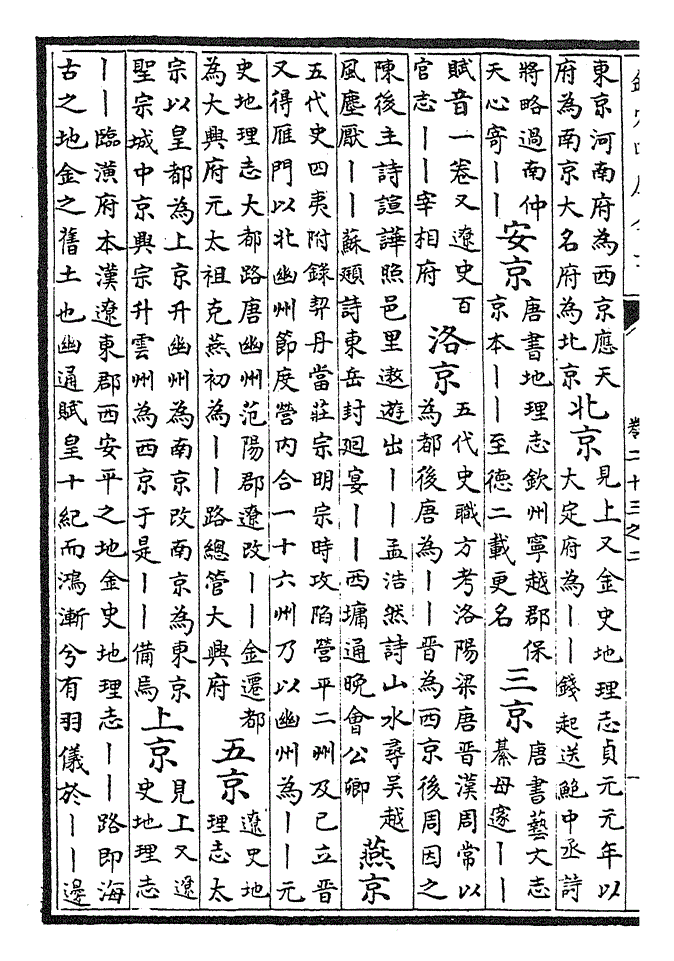 東京河南府為西京應天
府為南京大名府為北京
北京
見上又金史地理志貞元元年以
大定府為——錢起送鮑中丞詩
將略過南仲
天心寄——
安京
唐書地理志欽州寧越郡保
京本——至德二載更名
三京
唐書藝文志
綦母邃——
賦音一卷又遼史百
官志——宰相府
洛京
五代史職方考洛陽梁唐晉漢周常以
為都後唐為——晉為西京後周因之
陳後主詩諠譁照邑里遨遊出——孟浩然詩山水尋吳越
風塵厭——蘇頲詩東岳封廻宴——西墉通晚會公卿
燕京
五代史四夷附錄契丹當莊宗明宗時攻陷營平二州及已立晉
又得雁門以北幽州節度營内合一十六州乃以幽州為——元
史地理志大都路唐幽州范陽郡遼改——金遷都
為大興府元太祖克燕初為——路總管大興府
五京
遼史地
理志太
宗以皇都為上京升幽州為南京改南京為東京
聖宗城中京興宗升雲州為西京于是——備焉
上京
見上又遼
史地理志
——臨潢府本漢遼東郡西安平之地金史地理志——路即海
古之地金之舊土也幽通賦皇十紀而鴻漸兮有羽儀於——邊